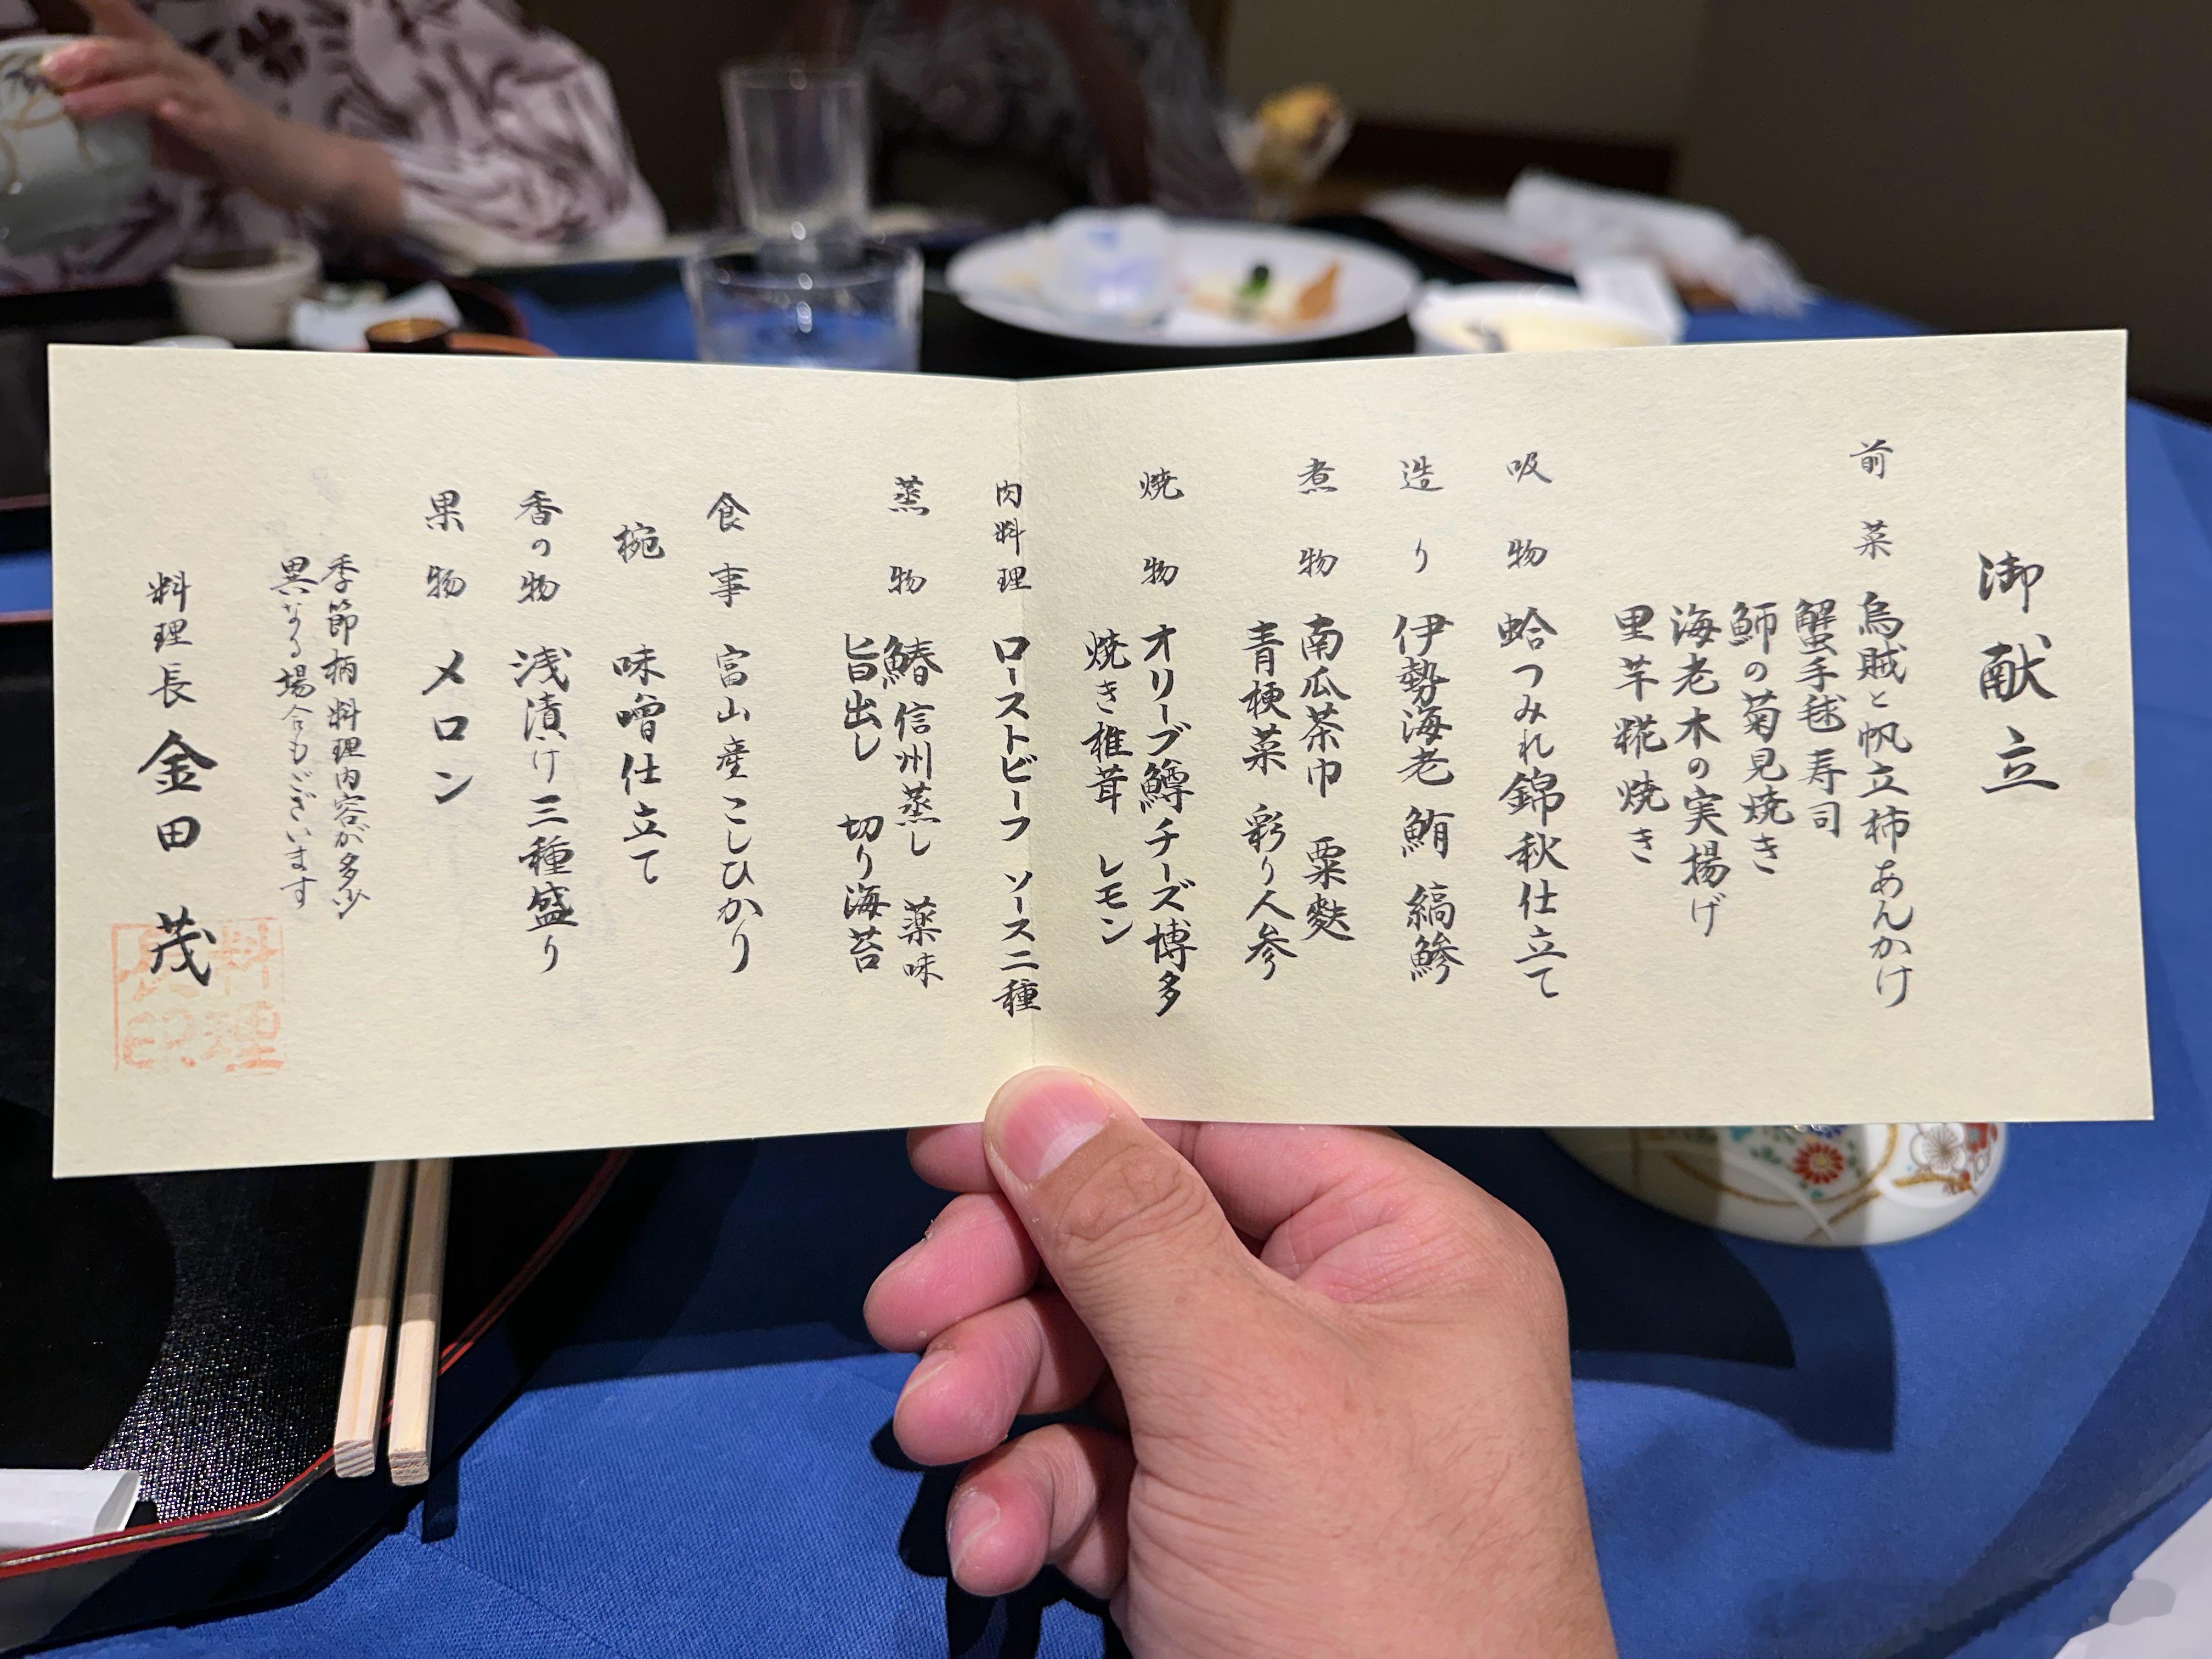 御献立
前菜 烏賊と帆立柿あんかけ
蟹手毬寿司
鰤の菊見焼き
海老木の実揚げ
里芋糀焼き
吸物 蛤つみれ錦秋仕立て
造り 伊勢海老 鮪 縞鯵
煮物 南瓜茶巾 粟麩
青梗菜 彩り人参
焼物 オリーブ鱒チーズ博多
焼き椎茸 レモン
肉料理 ローストビーフ ソース二種
蒸物 鰆信州蒸し 薬味
旨出し 切り海苔
食事 富山産こしひかり
椀 味噌仕立て
香の物 浅漬け三種盛り
果物 メロン
季節柄料理内容が多少
異なる場合もございます
料理長 金田 茂
料理
長印